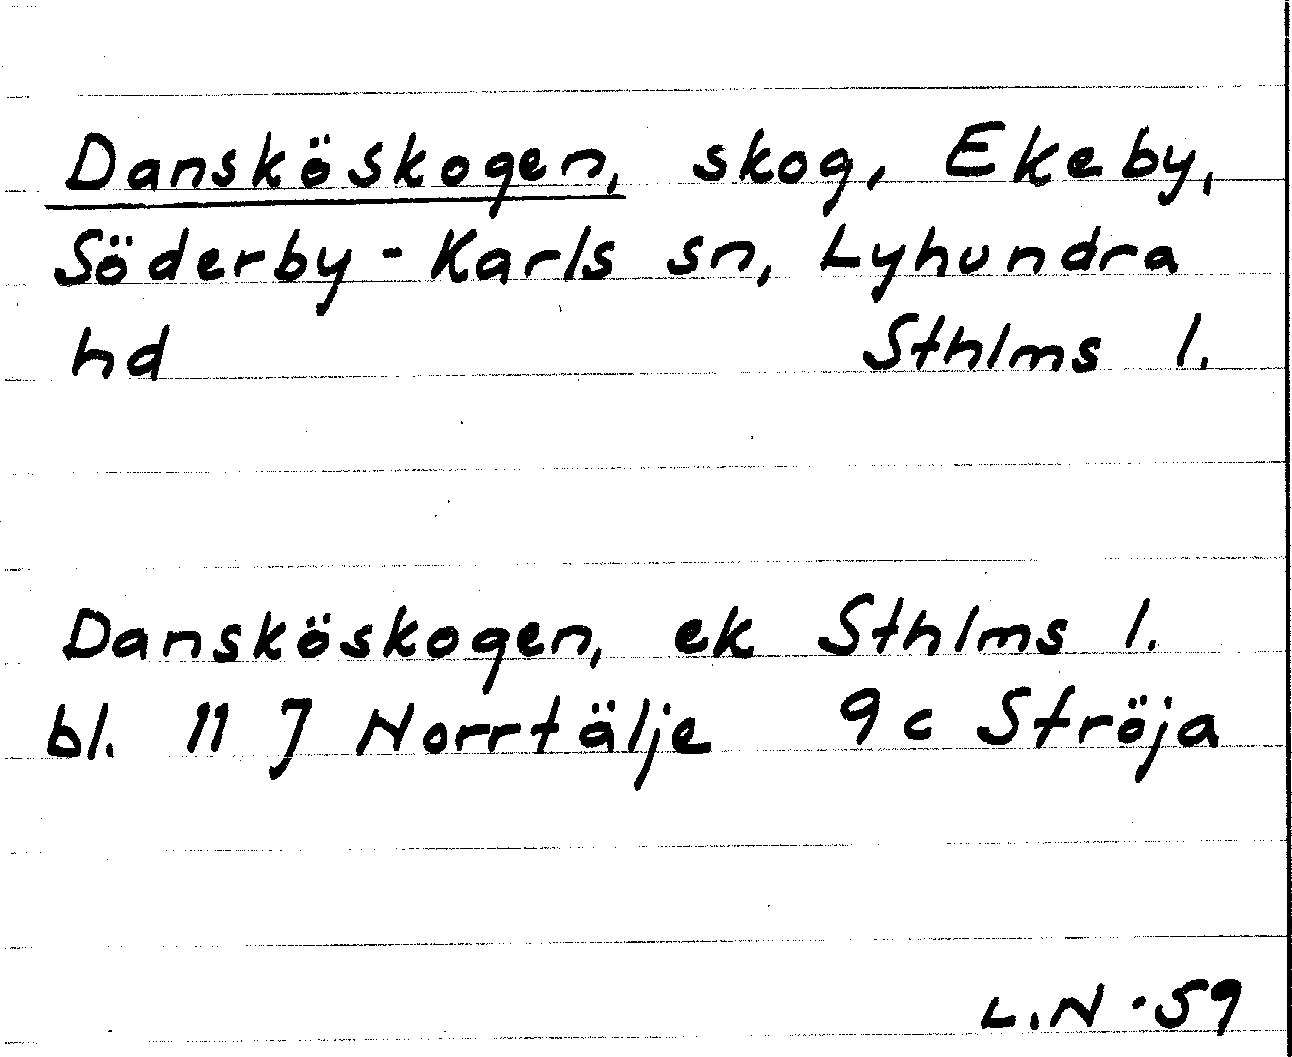 Dansköskogen, skog, Ekeby,
Söderby-Karls sn, Lyhundra
hd Sthlms l.
Dansköskogen, ek Sthlms l.
bl. 11 J Norrtälje 9c Ströja
L.N · 59